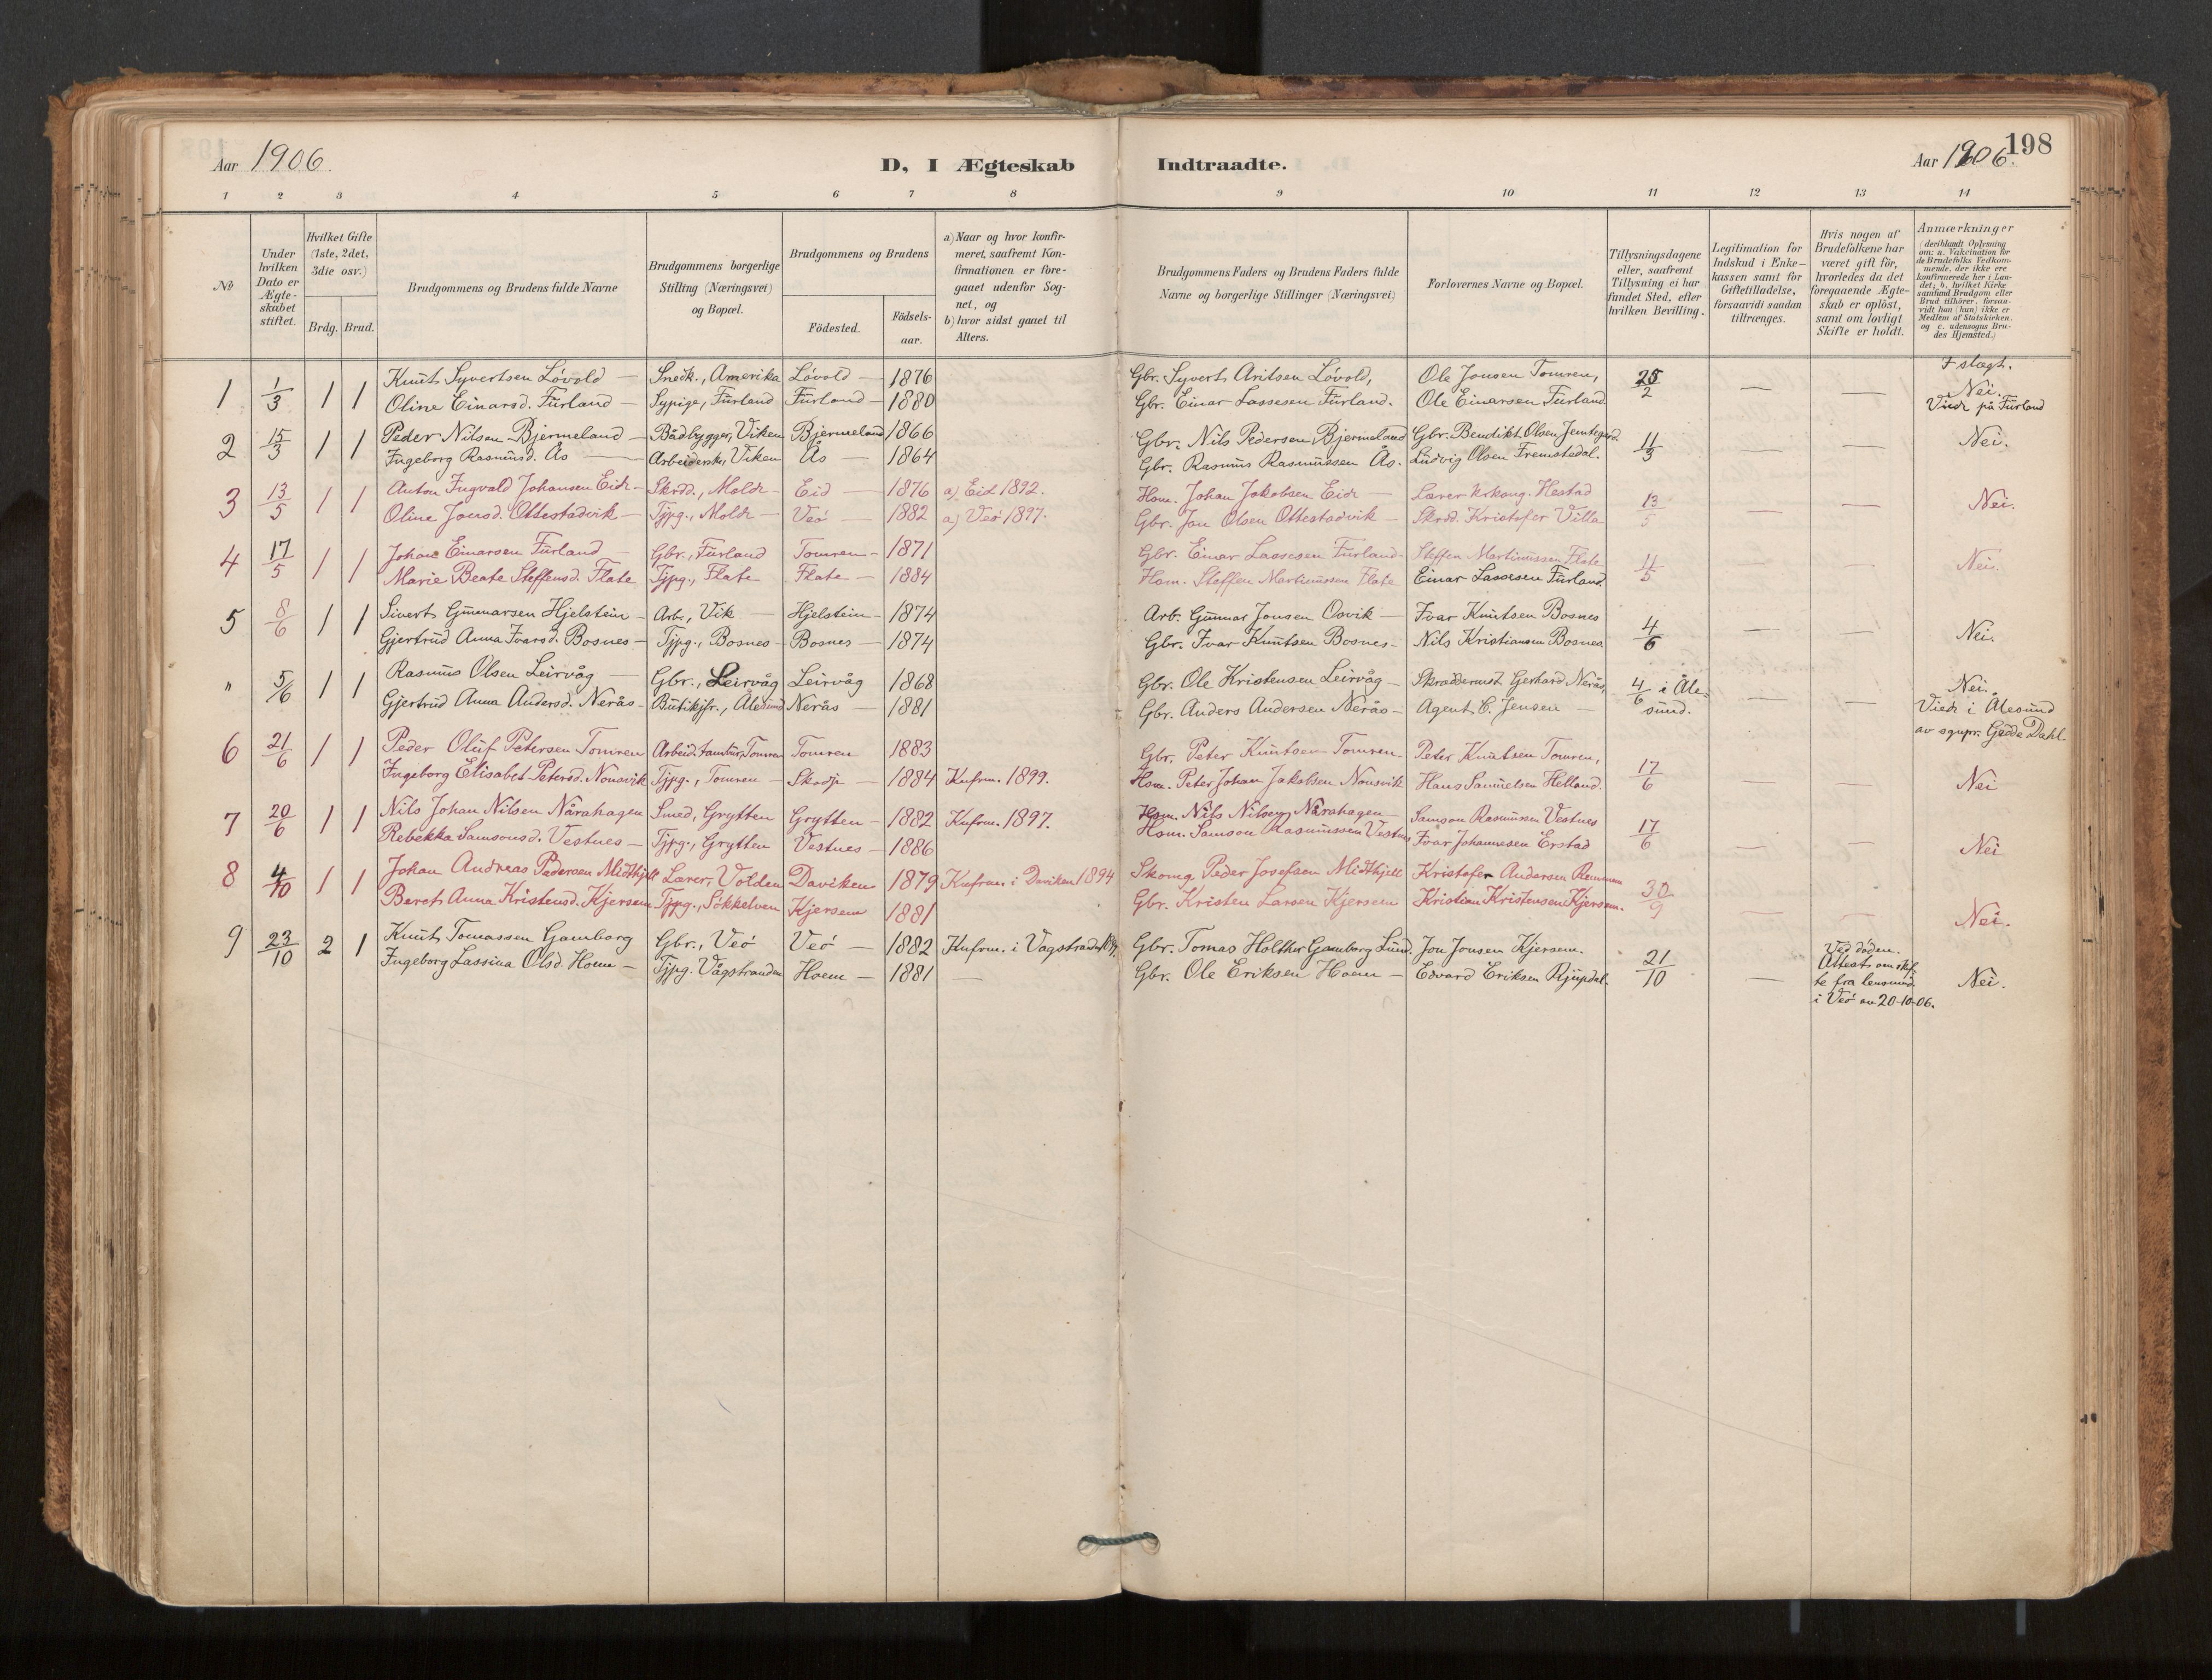 Aar 1906.
D, I Ægteskab Indtraadte.
Aar 1906.
198
1 2 3 4 5 6 7 8 9 10 11 12 13 14
No
Under hvilken Dato er Ægteskabet stiftet.
Hvilket Gifte (1ste, 2det, 3die osv.)
Brdg. Brud.
Brudgommens og Brudens fulde Navne
Brudgommens borgerlige Stilling (Næringsvei) og Bopæl.
Brudgommens og Brudens
Födested.
Födsels-aar.
a) Naar og hvor konfirmeret, saafremt Konfirmationen er foregaaet udenfor Sognet, og
b) hvor sidst gaaet til Alters.
Brudgommens Faders og Brudens Faders fulde Navne og borgerlige Stillinger (Næringsvei)
Forlovernes Navne og Bopæl.
Tillysningsdagene eller, saafremt Tillysning ei har fundet Sted, efter hvilken Bevilling.
Legitimation for Indskud i Enkekassen samt for Giftetilladelse, forsaavidt saadan tiltrænges.
Hvis nogen af Brudefolkene har været gift för, hvorledes da det foregaaende Ægteskab er oplöst, samt om lovligt Skifte er holdt.
Anmærkninger (deriblandt Oplysning om: a. Vakcination for de Brudefolks Vedkommende, der ikke ere konfirmerede her i Landet; b. hvilket Kirkesamfund Brudgom eller Brud tilhörer, forsaavidt han (hun) ikke er Medlem af Statskirken. og c. udensogns Brudes Hjemsted.)
I slegt.
1 1/3 1 1 Knut Syvertsen Lövold — Snedk., Amerika Lövold — 1876 Gbr. Syvert Aritsen Lövold, Ole Jonsen Tomren, 25/2 — — Nei.
Oline Einarsd. Furland — Sypige, Furland Furland — 1880 Gbr. Einar Lassesen Furland. Ole Einarsen Furland Viede på Furland
2 15/3 1 1 Peder Nilsen Bjermeland — Bådbygger, Viken Bjermeland 1866 Gbr. Nils Pedersen Bjermeland Gbr. Bendikt Olsen Jemtegard. 11/3 — — Nei.
Ingeborg Rasmusd. Ås — Arbeiderske, Viken Ås — 1864 Gbr. Rasmus Rasmussen Ås. Ludvig Olsen Fremstedal.
3 13/5 1 1 Anton Ingvald Johansen Eide — Skrdd., Molde — Eid — 1876 a) Eid 1892. Hsm. Johan Jakobsen Eide — Lærer Kskong. Hestad 13/5 — — Nei.
Oline Jonsd. Ottestadvik — Tjpg., Molde — Veö — 1882 a) Veö 1897. Gbr. Jon Olsen Ottestadvik — Skrdd. Kristofer Villa
4 17/5 1 1 Johan Einarsen Furland — Gbr., Furland Tomren — 1871 Gbr. Einar Lassesen Furland — Steffen Martinussen Flate 4/5 Nei.
Marie Beate Steffensd. Flate Tjpg., Flate Flate — 1884 Hsm. Steffen Martinussen Flate Einar Lassesen Furland.
5 8/6 1 1 Sivert Gunnarsen Hjelstein — Arb., Vik — Hjelstein — 1874 Arb. Gunnar Jonsen Osvik — Ivar Knutsen Bosnes 4/6 — — Nei.
Gjertrud Anna Ivarsd. Bosnes — Tjpg., Bosnes — Bosnes — 1874 Gbr. Ivar Knutsen Bosnes — Nils Kristiansen Bosnes.
" 5/6 1 1 Rasmus Olsen Leirvåg — Gbr., Leirvåg Leirvåg 1868 Gbr. Ole Kristensen Leirvåg — Skreddermst. Gerhard Nerås, 4/6 i Åle- — — Nei.
Gjertrud Anna Andersd. Nerås — Butikjfr., Ålesund Nerås — 1881 Gbr. Anders Andersen Nerås — Agent C. Jensen — sund. Viede i Ålesund
av sgnpr. Gedde Dahl.
6 21/6 1 1 Peder Oluf Petersen Tomren Arbeid. tambur, Tomren Tomren 1883 Gbr. Peter Knutsen Tomren Peter Knutsen Tomren, 17/6 — — Nei
Ingeborg Elisabet Petersd. Nonsvik Tjpg., Tomren — Skodje — 1884 Knfrm. 1899. Hsm. Peter Johan Jakobsen Nonsvik Hans Samuelsen Helland.
7 20/6 1 1 Nils Johan Nilsen Nårahagen Smed, Grytten Grytten — 1882 Knfrm. 1897. Hsm. Nils Nilsen Nårahagen — Samson Rasmussen Vestnes 17/6 — — Nei
Rebekka Samsonsd. Vestnes — Tjpg., Grytten Vestnes — 1886 Hsm. Samson Rasmussen Vestnes Ivar Johannesen Erstad
8 4/10 1 1 Johan Andreas Pedersen Midthjell Lærer, Volden Daviken 1879 Knfrm. i Daviken 1894 Skomg. Peder Josefsen Midthjell Kristofer Andersen Remmem 30/9 — — Nei.
Beret Anna Kristensd. Kjersem Tjpg., Sökkelven Kjersem 1881 Gbr. Kristen Larsen Kjersem Kristian Kristensen Kjersem.
9 23/10 2 1 Knut Tomassen Gamborg Gbr., Veö Veö — 1882 Knfrm. i Vågstranda Gbr. Tomas Holther Gamborg Lund. Jon Jonsen Kjersem. 21/10 — Ved döden. Attest om skifte fra lensmd. i Veö av 20-10-06. Nei.
Ingeborg Lassina Olsd. Hoem — Tjpg. Vågstranden Hoem — 1881 — Gbr. Ole Eriksen Hoem — Edvard Eriksen Rjupdal.